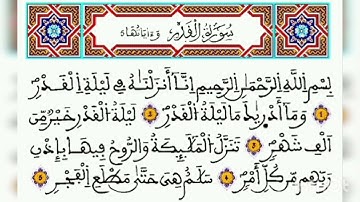 سُورَةُ الْقَدْرِ وَءَايَاتُهَا
بِسْمِ اللَّهِ الرَّحْمَٰنِ الرَّحِيمِ إِنَّا أَنزَلْنَٰهُ فِي لَيْلَةِ الْقَدْرِ
وَمَا أَدْرَيٰكَ مَا لَيْلَةُ الْقَدْرِ لَيْلَةُ الْقَدْرِ خَيْرٌ مِّنْ
أَلْفِ شَهْرٍ تَنَزَّلُ الْمَلَٰٓئِكَةُ وَالرُّوحُ فِيهَا بِإِذْنِ
رَبِّهِم مِّن كُلِّ أَمْرٍ سَلَٰمٌ هِيَ حَتَّىٰ مَطْلَعِ الْفَجْرِ